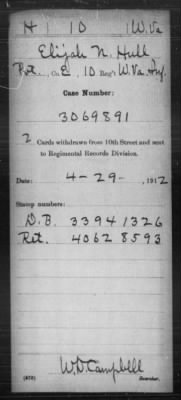 H | 10 | W.Va
Elijah N. Hull
Pvt., Co. E, 10 Reg't W.Va. Inf.
Case Number:
3069891
2 Cards withdrawn from 10th Street and sent
to Regimental Records Division.
Date: 4-29-, 1912
Stamp numbers:
D.B. 33941326
Ret. 40628593
W.D. Campbell
Searcher.